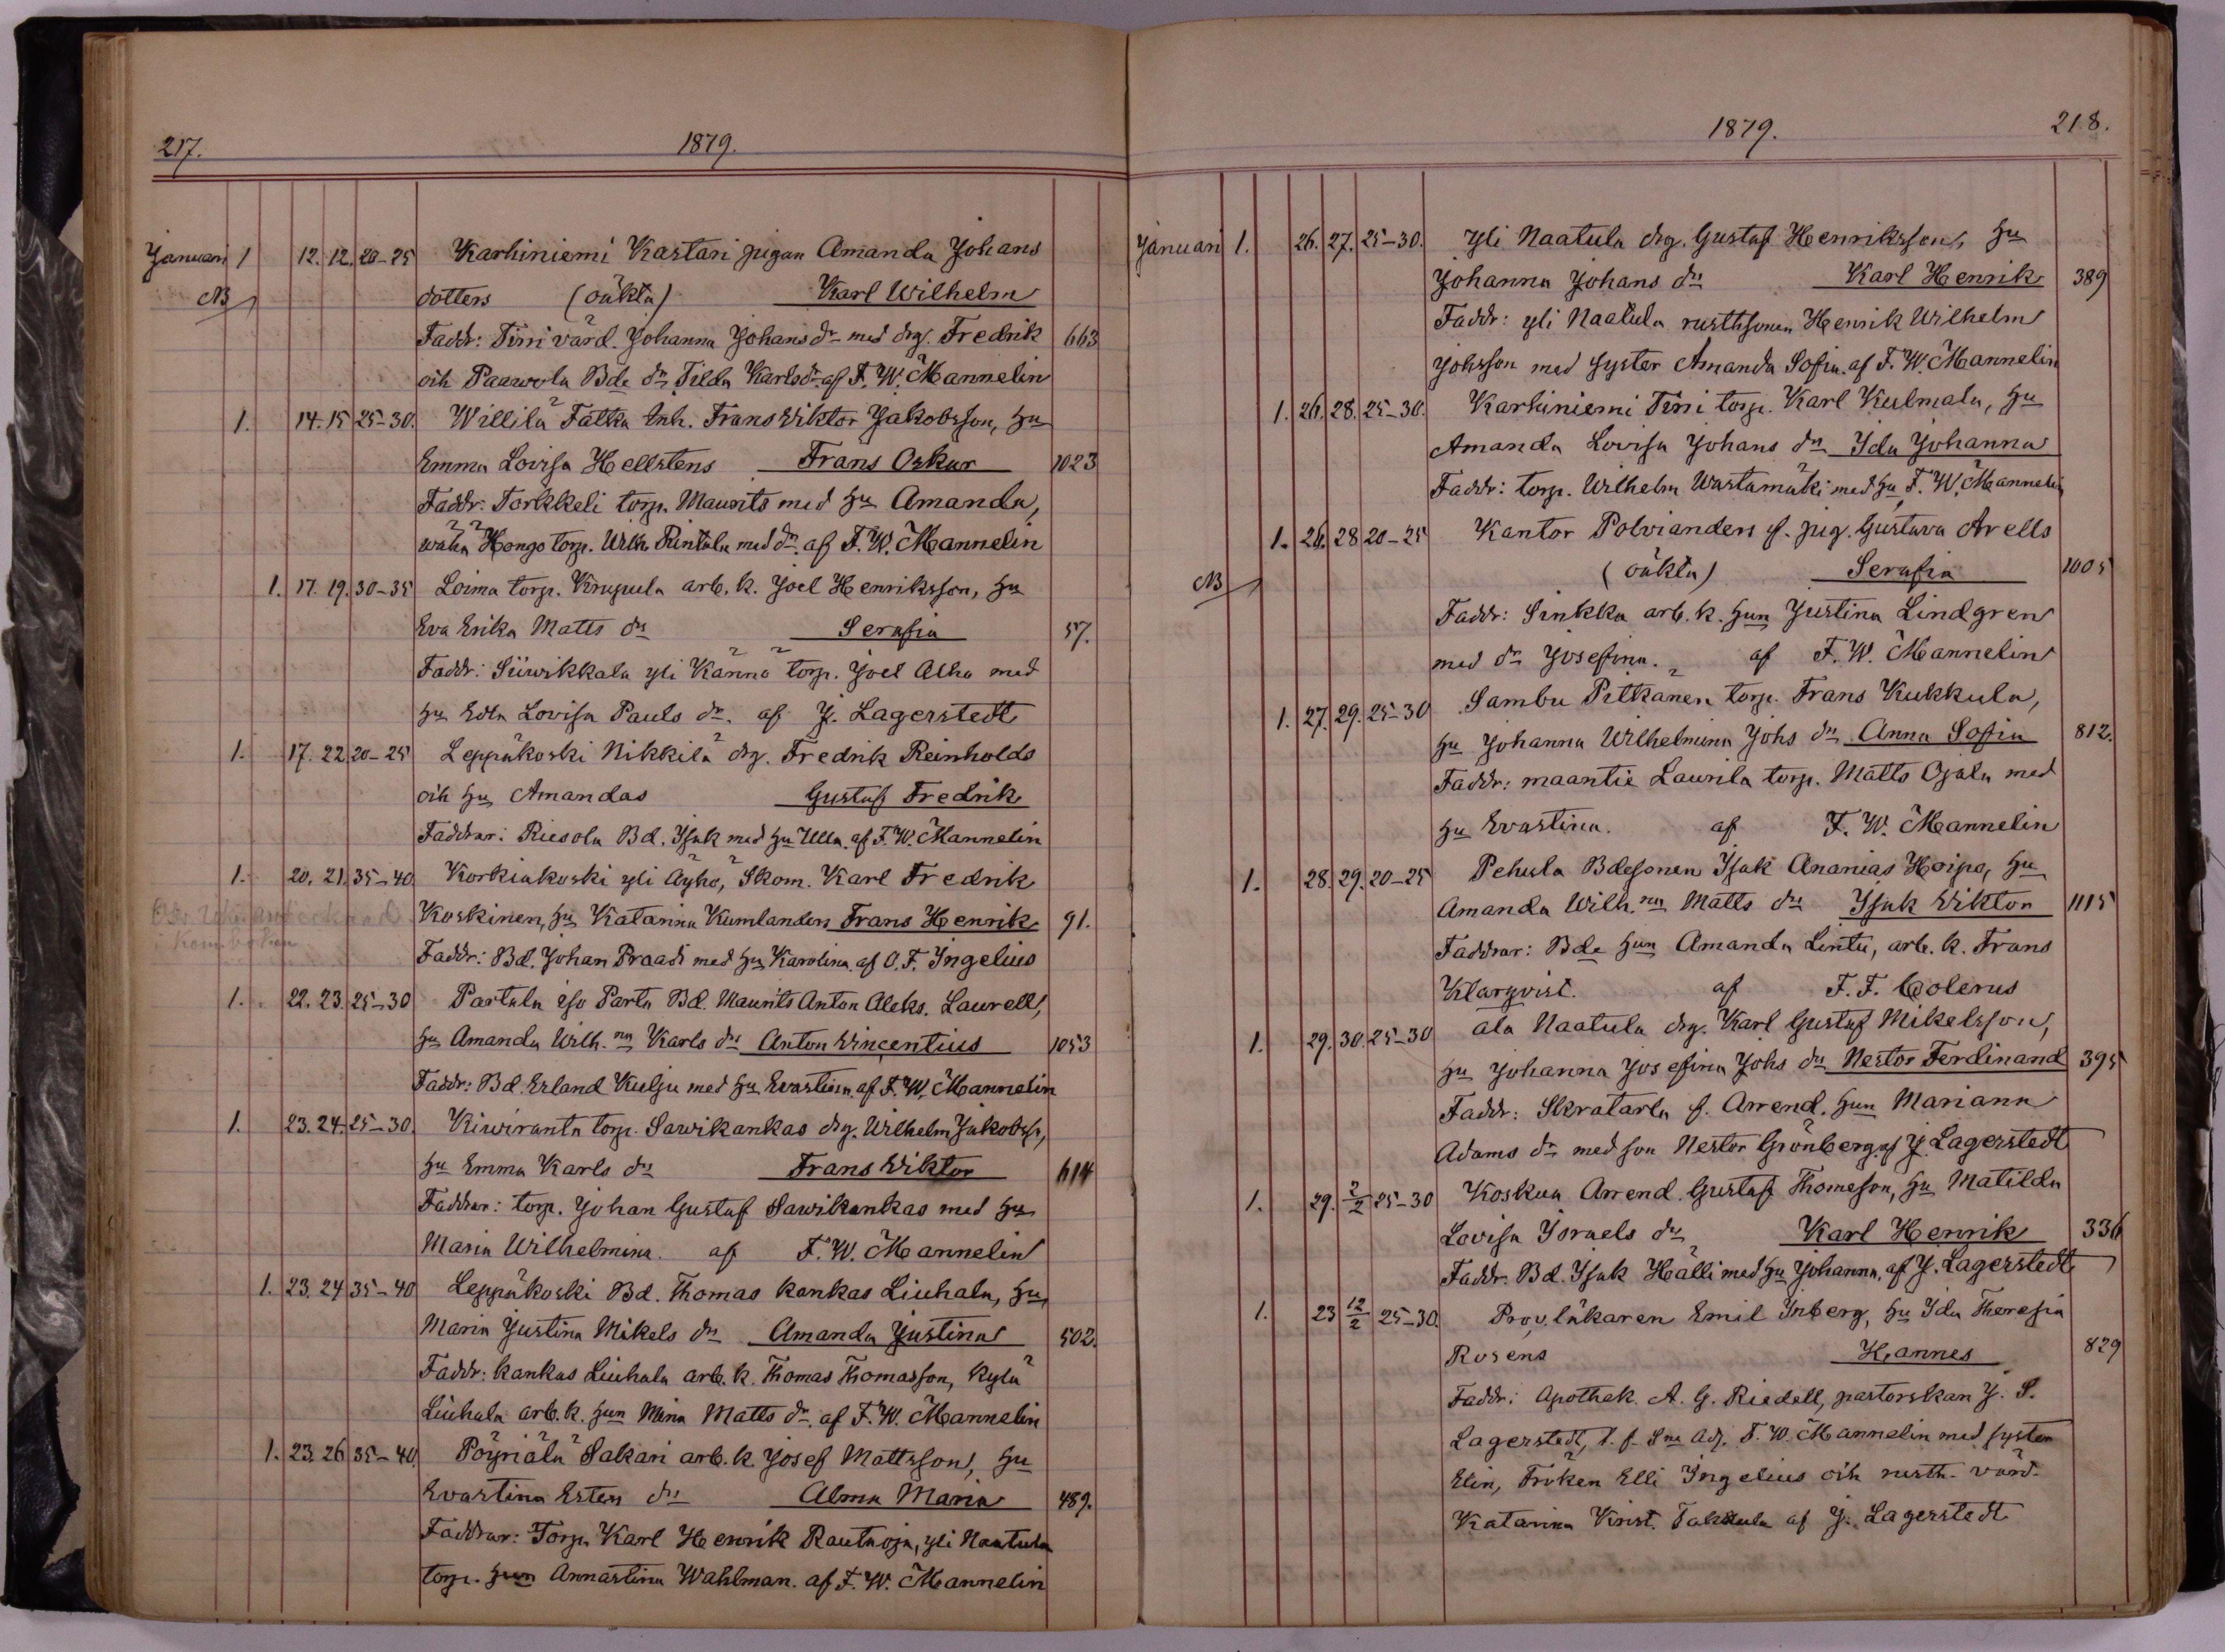 217.
1879.
Januari 1 12. 12. 20-25 Karhiniemi Kastari pigan Amanda Johans
NB dotters (oäkta) Karl Wilhelm
Faddr: Tirri värd. Johanna Johans dr med drg. Fredrik 663
och Paawola Bde dr Tilda Karlsdr af F. W. Mannelin
1. 14. 15 25-30. Willilä Fatka Inh. Frans Viktor Jakobsson, hu
Emma Lovisa Hellstens Frans Oskar 1023
Faddr: Torkkeli torp. Maurits med hu Amanda,
wähä Hongo torp. Wilh. Rintala med dr. af F. W. Mannelin
1. 17. 19. 30-35 Loima torp. Krupula arb. k. Joel Henriksson, hu
Eva Erika Matts drs Serafia 57.
Faddr: Siiwikkala yli Kännö torp. Joel Alha med
hu Edla Lovisa Pauls dr. af J. Lagerstedt
1. 17. 22 20-25 Leppäkoski Nikkilä drg. Fredrik Reinholds
och hu Amandas Gustaf Fredrik
Faddrar: Riesola Bd. Isak med hu Ulla. af F. W. Mannelin
1. 20. 21. 35-40 Korkiakoski yli Äyhö, Skom. Karl Fredrik
Koskinen, hu Katarina Kumlanders Frans Henrik 91.
Faddr: Bd. Johan Praadi med hu Karolina. af O. F. Ingelius
1. 22. 23. 25-30 Partala iso Parta Bd. Maurits Anton Aleks. Laurell,
hu Amanda Wilh. na Karls drs Anton Vincentius 1053
Faddr: Bd. Erland Kulju med hu Evastina. af F. W. Mannelin
1. 23. 24. 25-30. Kiwiranta torp. Sawikankas drg. Wilhelm Jakobss,
hu Emma Karls drs Frans Viktor 614
Faddrar: torp. Johan Gustaf Sawikankas med hu
Maria Wilhelmina. af F. W. Mannelin
1. 23. 24 35-40 Leppäkoski Bd. Thomas kankas Liuhala, hu,
Maria Justina Mikels drs Amanda Justina 502.
Faddr: kankas Liuhala arb. k. Thomas Thomasson, kylä
Liuhala arb. k. hun Mina Matts dr. af F. W. Mannelin
1. 23. 26 35-40. Pöyriälä Sakari arb. k. Josef Mattsson, hu
Evastina Esters drs Alma Maria 489.
Faddrar: Torp. Karl Henrik Rautaoja, yli Naatula
torp. hun Annastina Wahlman. af F. W. Mannelin
1879.
218.
Januari 1. 26. 27. 25-30. yli Naatula drg. Gustaf Henriksson, hu
Johanna Johans drs Karl Henrik 389
Faddr: yli Naatula rusthsonen Henrik Wilhelm
Johsson med syster Amanda Sofia. af F. W. Mannelin
1. 26. 28. 25-30. Karhiniemi Tirri torp. Karl Kulmala, hu
Amanda Lovisa Johans drs Ida Johanna
Faddr: torp. Wilhelm Wastamäki med hu, F. W. Mannelin
1. 26. 28 20-25 Kantor Polvianders f. pig. Gustava Arells
NB (oäkta) Serafia 1005
Faddr: Sinkka arb. k. hun Justina Lindgren
med dr Josefina. af F. W. Mannelin
1. 27. 29. 25-30 Sambu Pitkänen torp. Frans Kukkula,
hu Johanna Wilhelmina Johs drs Anna Sofia 812.
Faddr: maantie Laurila torp. Matts Ojala med
hu Evastina. af F. W. Mannelin
1. 28. 29. 20-25 Pehula Bdesonen Isak Ananias Hoipo, hu
Amanda Wilh. na Matts drs Isak Viktor 1115
Faddrar: Bde hun Amanda Lintu, arb. k. Frans
Klarqvist. af F. F. Colerus
1. 29. 30. 25-30 ala Naatula drg. Karl Gustaf Mikelsson,
hu Johanna Josefina Johs drs Nestor Ferdinand 395
Faddr: Skratarla f. Arrend. hun Mariana
Adams dr med son Nestor Grönberg. af J. Lagerstedt
1. 29. 2/2 25-30 Koskua Arrend. Gustaf Thomeson, hu Matilda
Lovisa Israels drs Karl Henrik 336
Faddr. Bd. Isak Hälli med hu Johanna. af J. Lagerstedt
1. 23 12/2 25-30. Prov. läkaren Emil Inberg, hu Ida Theresia
Rosens Hannes 829
Faddr: Apothek. A. G. Riedell, pastorskan J. S.
Lagerstedt, t. f. Sne Adj. F. W. Mannelin med syster
Elin, Fröken Elli Ingelius och rusth. värd.
Katarina Krist. Takkula af J. Lagerstedt